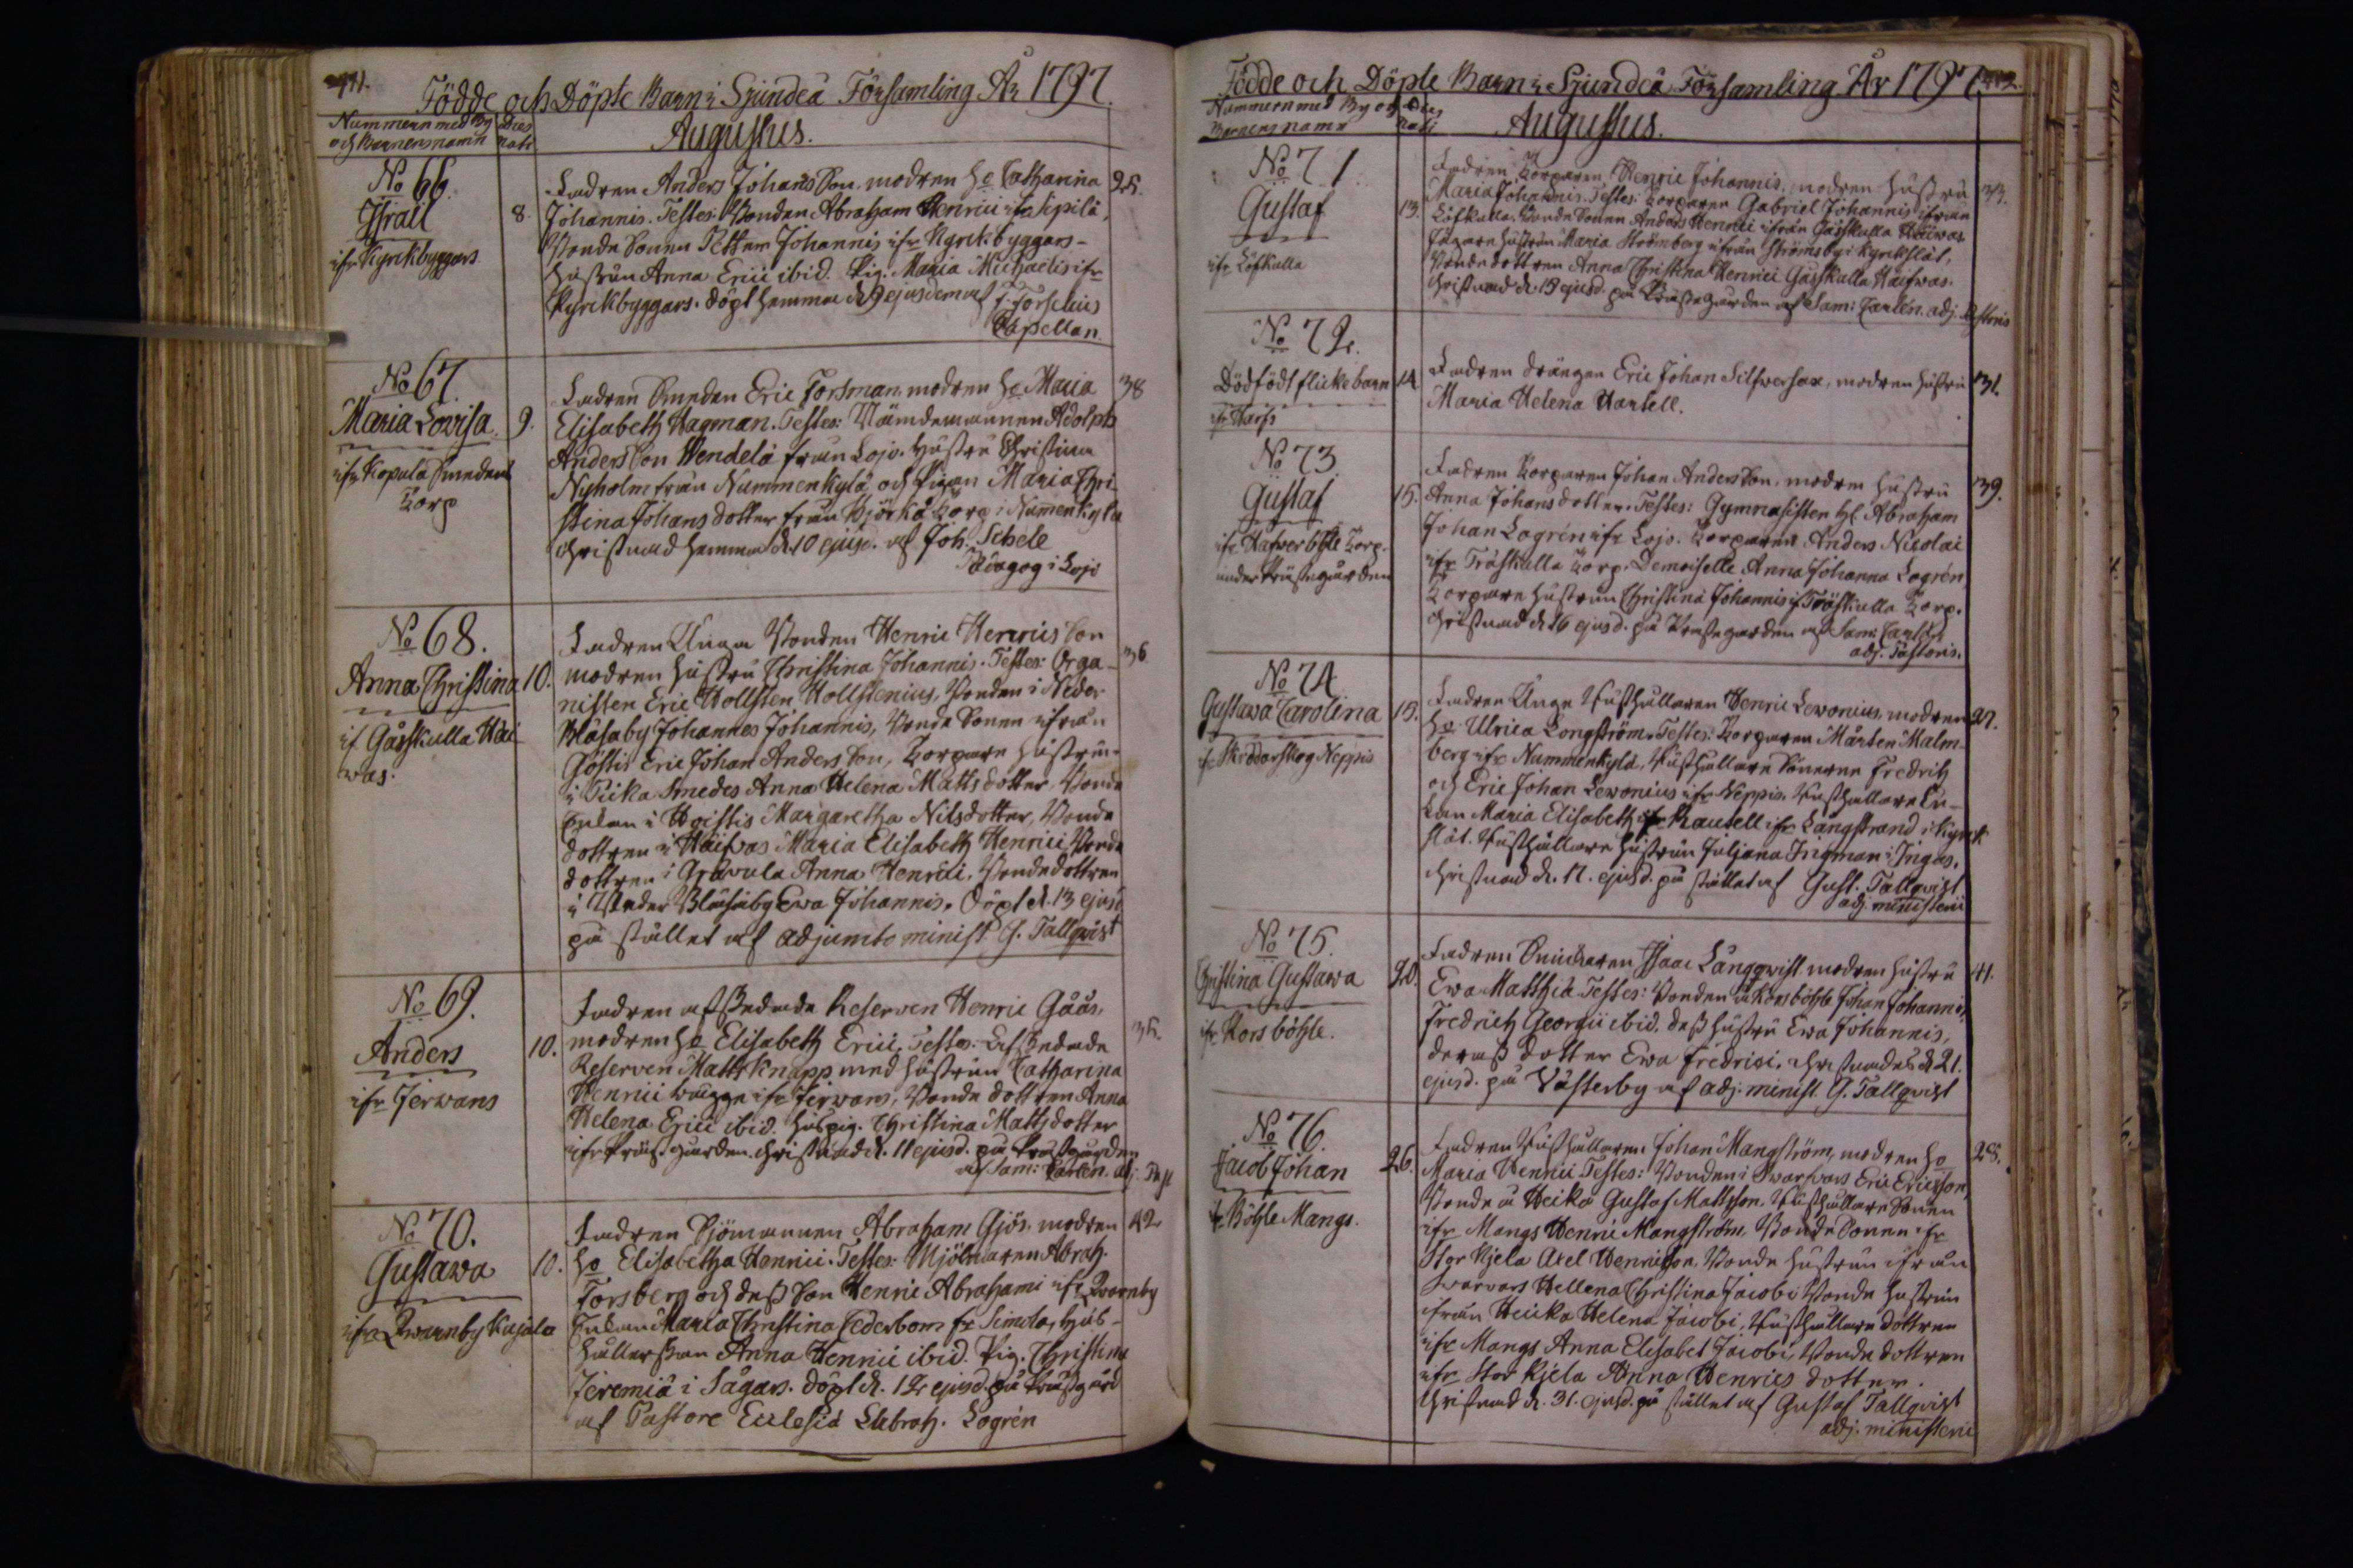 Födde och Döpte Barn i Sjundeå Församling År 1797.
Nummern med By och Barnens namn
Dies nati
Augustus.
No 66.
Israel
ifr Kyrkbyggars
8.
Fadren Anders Johans Son, modren ho Catharina
Johannis. Testes: Bonden Abraham Henrici ifr Sipilä,
Bonde Sonen Petter Johannis ifr Kyrkbyggars-
hustrun Anna Erici ibid. Pig. Maria Michaelis ifr
Kyrkbyggars. döpt hemma d. 9 ejusdem af J. Forselius
Capellan.
No 67.
Maria Lovisa.
ifr Kopula Smedens
Torp
9.
38
Fadren Smeden Eric Forsman, modren ho Maria
Elisabeth Hagman. Testes: Nämdemannen Adolph
Anders Son Wendelä från Lojo. Hustru Christina
Nyholm från Nummenkylä och Pigan Maria Chri
stina Johans dotter från Björkå Torp i Numenkylä
christnad hemma d. 10 ejusd. af Joh. Schele
Pädagog i Lojo
No 68.
Anna Christina
if Gårskulla Häi
was.
10.
36
Fadren Unga Bonden Henric Henrics Son
modren hustru Christina Johannis. Testes: Orga-
nisten Eric Hollsten Hollstenius, Bonden i Neder
Bläsaby Johannes Johannis, Bonde Sonen ifrån
Göstis Eric Johan Anders Son, Torpare hustrun
i Picka Smedes Anna Helena Matts dotter, Bonde
Enkan i Hoistis Margaretha Nilsdotter, Bonde
dottren i Häifvas Maria Elisabeth Henrici, Bonde
dottren i Gravula Anna Henrici, Bondedottren
i Neder Bläsaby Ewa Johannis. Döpt d. 13 ejusd
på stället af adjuncto minist. G. Tallqvist
No 69.
Anders
ifr Jerwans
10.
Fadren afskedade Reserven Henric Gåås,
modren ho Elisabeth Erici. Testes: Afskedade
Reserven Matts Knapp med hustrun Catharina
Henrici bägge ifr Jerwans, Bonde dottren Anna
Helena Erici ibid. huspig. Christina Matts dotter
ifr Prästgården. christnad d. 11 ejusd. på Prästgården
af Sam: Carlén. adj. Past
No 70.
Gustawa
ifrn Qvarnby Kujala
10.
42
Fadren Sjömannen Abraham Gjös, modren
ho Elisabetha Henrici. Testes: Mjölnaren Abrah.
Forsberg och dess Son Henric Abrahami ifr Qvarnby
Enkan Maria Christina Cederbom fr Simola, Hus-
hållerskan Anna Henrici ibid. Pig. Christina
Jeremiä i Sågars. döpt d. 12 ejusd. på Prästgård
af Pastore Ecclesiä Abrah. Logrén
Födde och Döpte Barn i Sjundeå Församling År 1797
Nummern med By och Barnens namn
Dies nati
Augustus.
No 71
Gustaf
ifr Löfkulla
13.
33.
Fadren Torparen Henric Johannis, modren hustru
Maria Johannis. Testes: Torparen Gabriel Johannis ifrån
Löfkulla. Bonde Sonen Anders Henrici ifrån Gårskulla Häiwas
Jägare hustrun Maria Strömberg ifrån Strömsby i Kyrkslät,
Bonde dottren Anna Christina Henrici Gårskulla Häifwas.
christnad d. 15 ejusd. på Prästegården af Sam: Carlén. adj. Pastoris
No 72.
Dödfödt flickebarn
ifr Harfs
14
31.
Fadren drängen Eric Johan Silfwersax, modren hustru
Maria Helena Hartell.
No 73.
Gustaf
ifr Hafverböhle Torp.
under Prästegården
15.
39.
Fadren Torparen Johan Anders Son, modren hustru
Anna Johansdotter. Testes: Gymnasisten Hl. Abraham
Johan Logrén ifr Lojo. Torparen Anders Nicolai
ifr Träskulla Torp. Demoiselle Anna Johanna Logrén
Torpare hustrun Christina Johannis if Träskulla Torp.
christnad d. 16 ejusd. på Prästegården af Sam: Carlén
adj. Pastoris.
No 74.
Gustawa Carolina
ifr Skräddarskog Neppis
15.
27.
Fadren Unge Rusthållaren Henric Lewonius, modren
ho Ulrica Longström. Testes: Torparen Mårten Malm-
berg ifr Nummenkylä, Rusthållare Sönerne Fredrik
och Eric Johan Lewonius ifr Neppis. Rusthållare En-
kan Maria Elisabeth Rautell ifr Långstrand i Kyrk
slät. Rusthållare hustrun Juliana Ingman i Ingås.
christnad d. 17. ejusd. på stället af Gust. Tallqvist
adj. ministerii
No 75.
Christina Gustawa
ifr Korsböhle.
20.
41.
Fadren Snickaren Isaac Långqvist modren hustru
Ewa Matthiä Testes: Bonden i Korsböhle Johan Johannis,
Fredrich Georgii ibid. dess hustru Ewa Johannis,
deras dotter Ewa Fredrici. christnades d. 21.
ejusd. på Västerby af adj. minist. G. Tallqvist
No 76.
Jacob Johan
ifr Böhle Mangs.
26.
28.
Fadren Rusthållaren Johan Mangström, modren ho
Maria Henrici Testes: Bonden i Swarfvars Eric Ericsson,
Bonde i Heika Gustaf Mattsson. Rusthållare Sonen
ifr Mangs Henric Mangström, Bonde Sonen ifr
Stor Kjela Axel Henricson. Bonde hustrun ifrån
Swarvars Hellena Christina Jacobi Bonde hustrun
från Heicka Helena Jacobi, Rusthållare dottren
ifr Mangs Anna Elisabet Jacobi, Bonde dottren
ifr Stor Kjela Anna Henrics dotter.
Christnad d. 31. ejusd. på stället af Gustaf Tallqvist
adj. ministerii